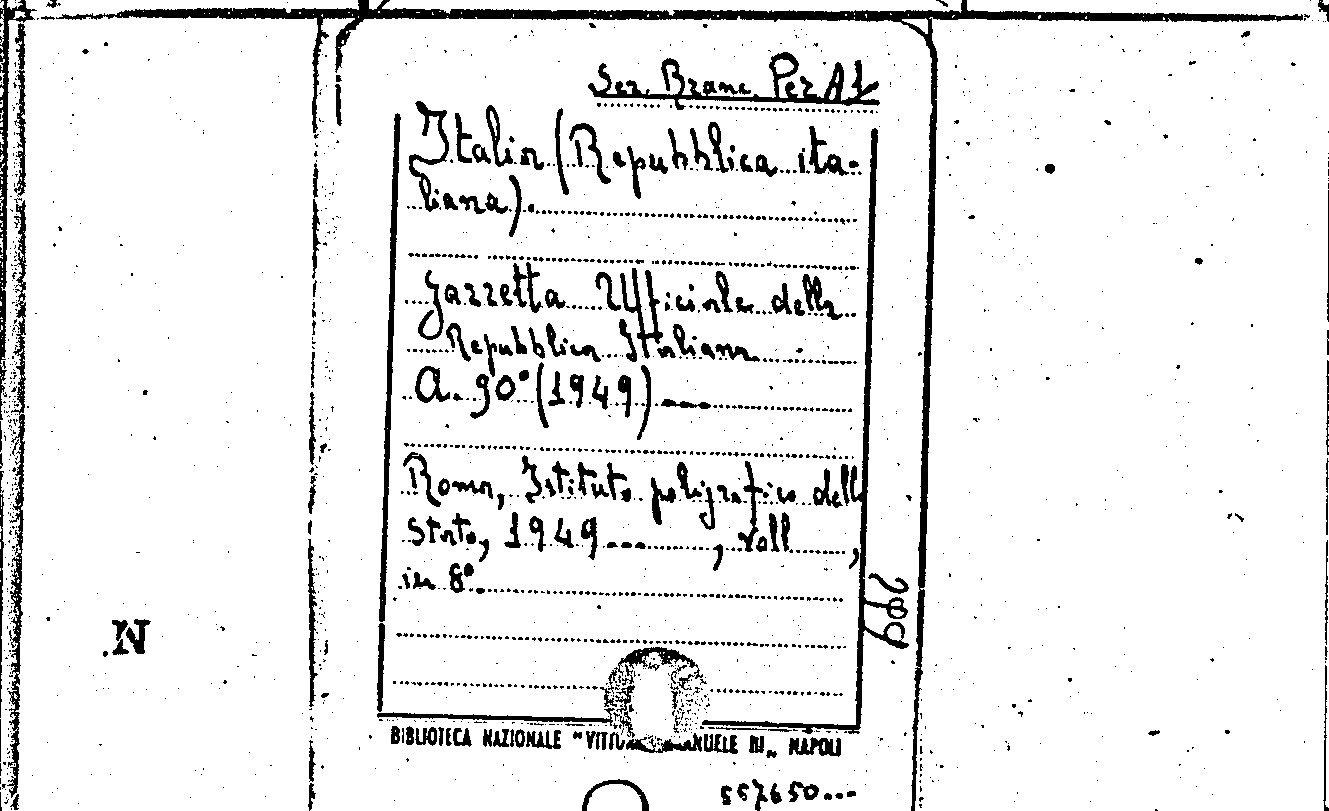 Sez. Branc. Per A 1
Italia (Repubblica ita-
liana).
Gazzetta Ufficiale della
Repubblica Italiana
A. 90° (1949) ---
Roma, Istituto poligrafico dello
stato, 1949 --- , voll ,
in 8°.
N
BIBLIOTECA NAZIONALE "VITTORIO EMANUELE III„ NAPOLI
557650...